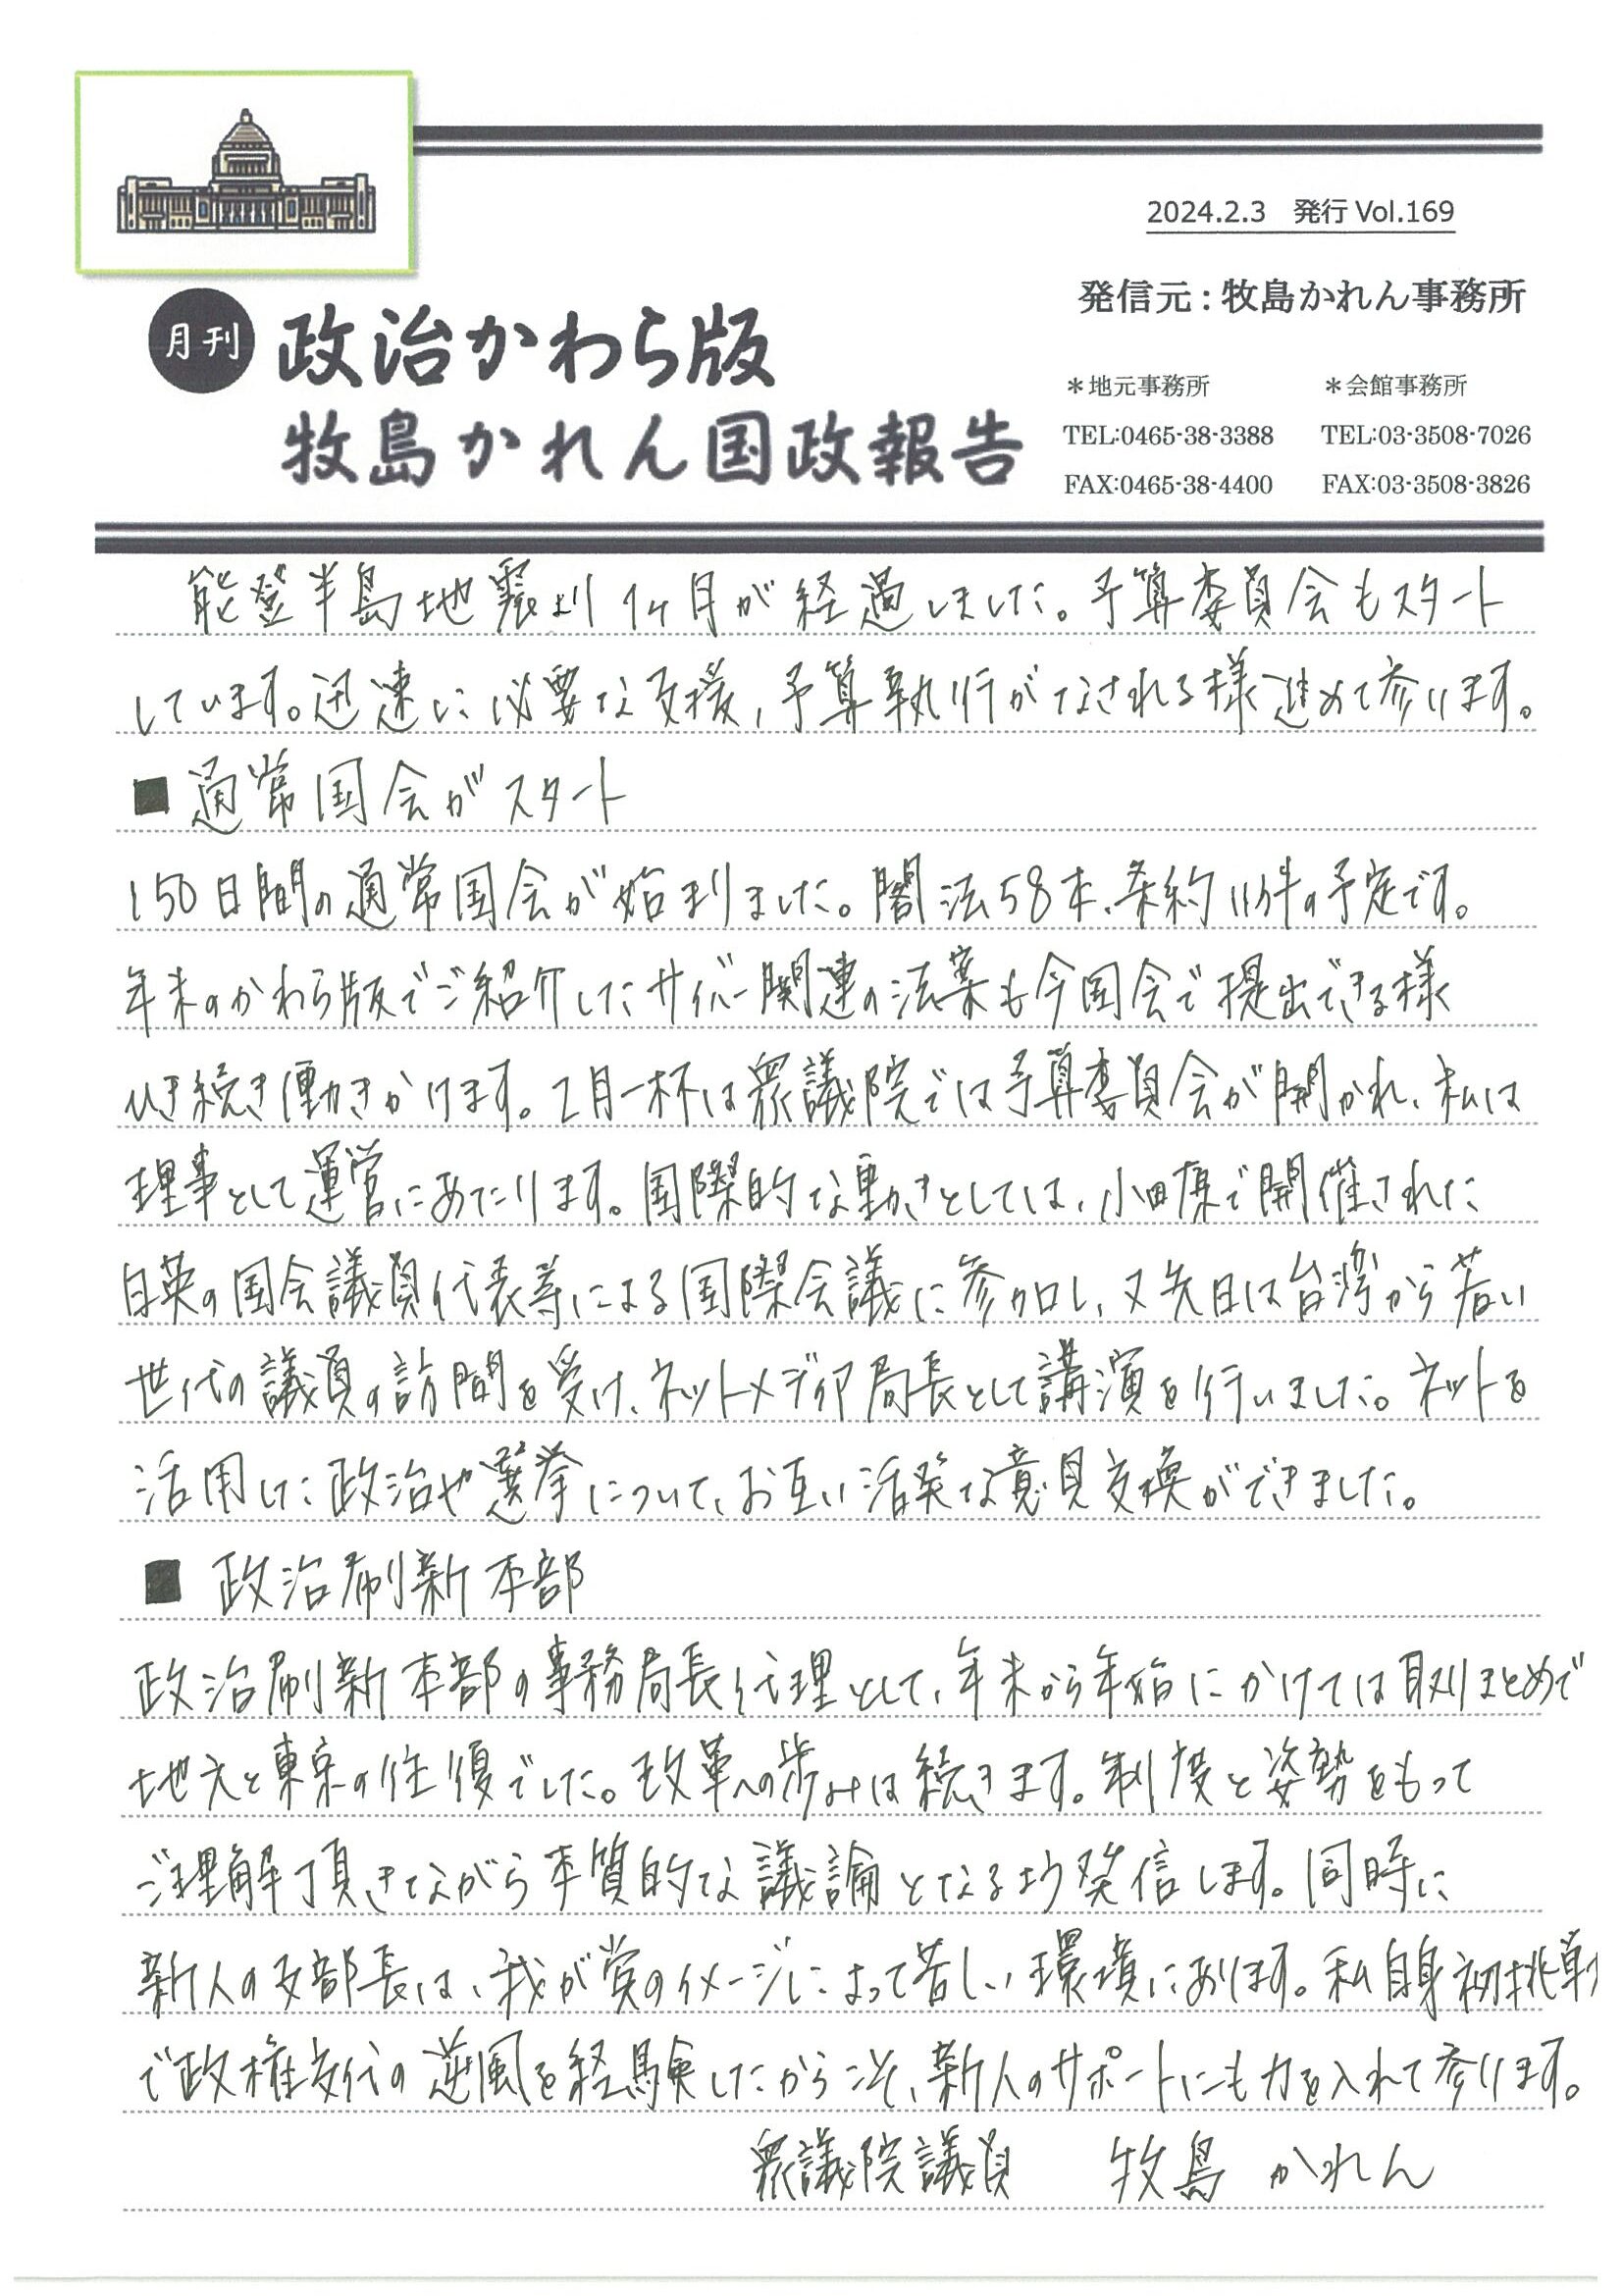 2024.2.3 発行 Vol.169
発信元:牧島かれん事務所
月刊 政治かわら版
牧島かれん国政報告
*地元事務所 *会館事務所
TEL:0465-38-3388 TEL:03-3508-7026
FAX:0465-38-4400 FAX:03-3508-3826
能登半島地震より1ヶ月が経過しました。予算委員会もスタート
しています。迅速に必要な支援、予算執行がなされる様進めて参ります。
■通常国会がスタート
150日間の通常国会が始まりました。閣法58本、条約11件の予定です。
年末のかわら版でご紹介したサイバー関連の法案も今国会で提出できる様
ひき続き働きかけます。2月一杯は衆議院では予算委員会が開かれ、私は
理事として運営にあたります。国際的な動きとしては、小田原で開催された
日英の国会議員代表等による国際会議に参加し、又先日は台湾から若い
世代の議員の訪問を受け、ネットメディア局長として講演を行いました。ネットを
活用した政治や選挙について、お互い活発な意見交換ができました。
■ 政治刷新本部
政治刷新本部の事務局長代理として、年末から年始にかけては取りまとめで
地元と東京の往復でした。改革への歩みは続きます。制度と姿勢をもって
ご理解頂きながら本質的な議論となるよう発信します。同時に
新人の支部長は、我が党のイメージによって苦しい環境にあります。私自身初挑戦
で政権交代の逆風を経験したからこそ、新人のサポートにも力を入れて参ります。
衆議院議員 牧島 かれん